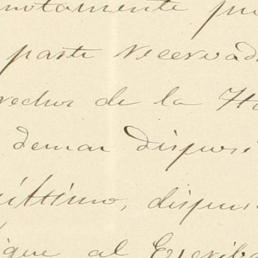 notamente pu
parte reservad
rechos de la Ha
demas disposi
último, dispus
que al Escriba